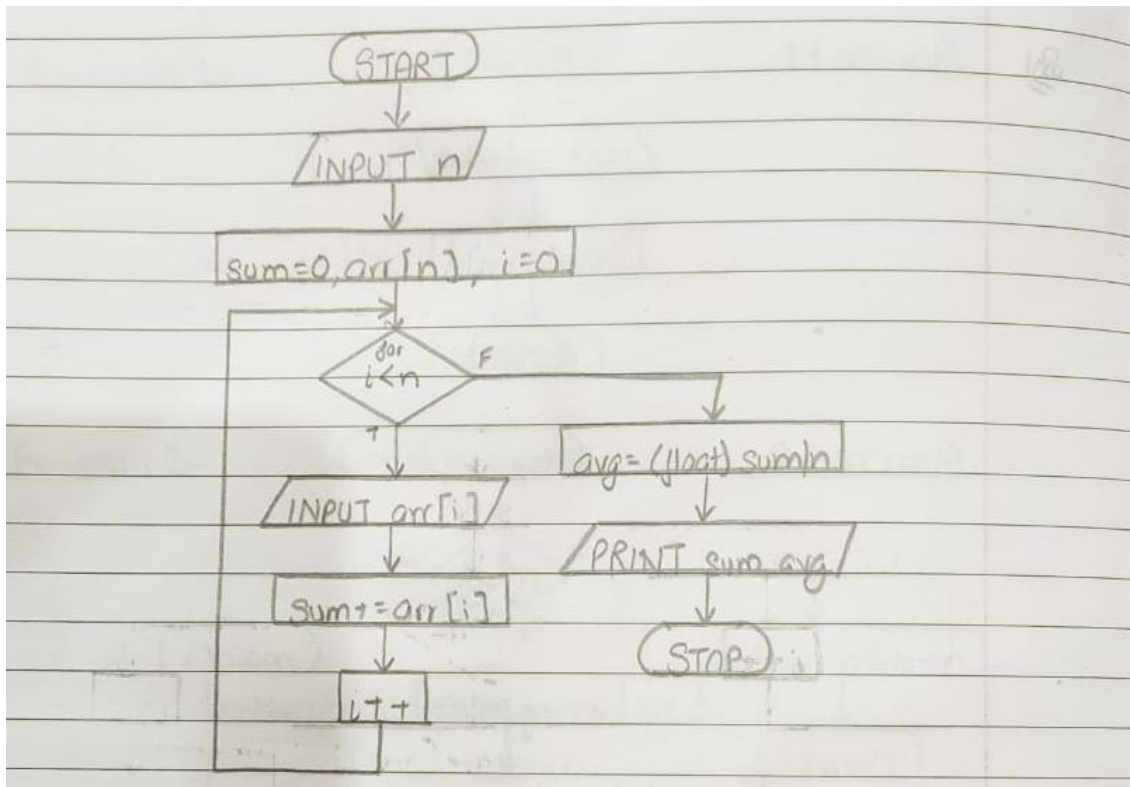 START
INPUT n
sum=0, arr[n], i=0
for
i<n
F
T
INPUT arr[i]
sum+=arr[i]
i++
avg=(float) sum/n
PRINT sum avg
STOP